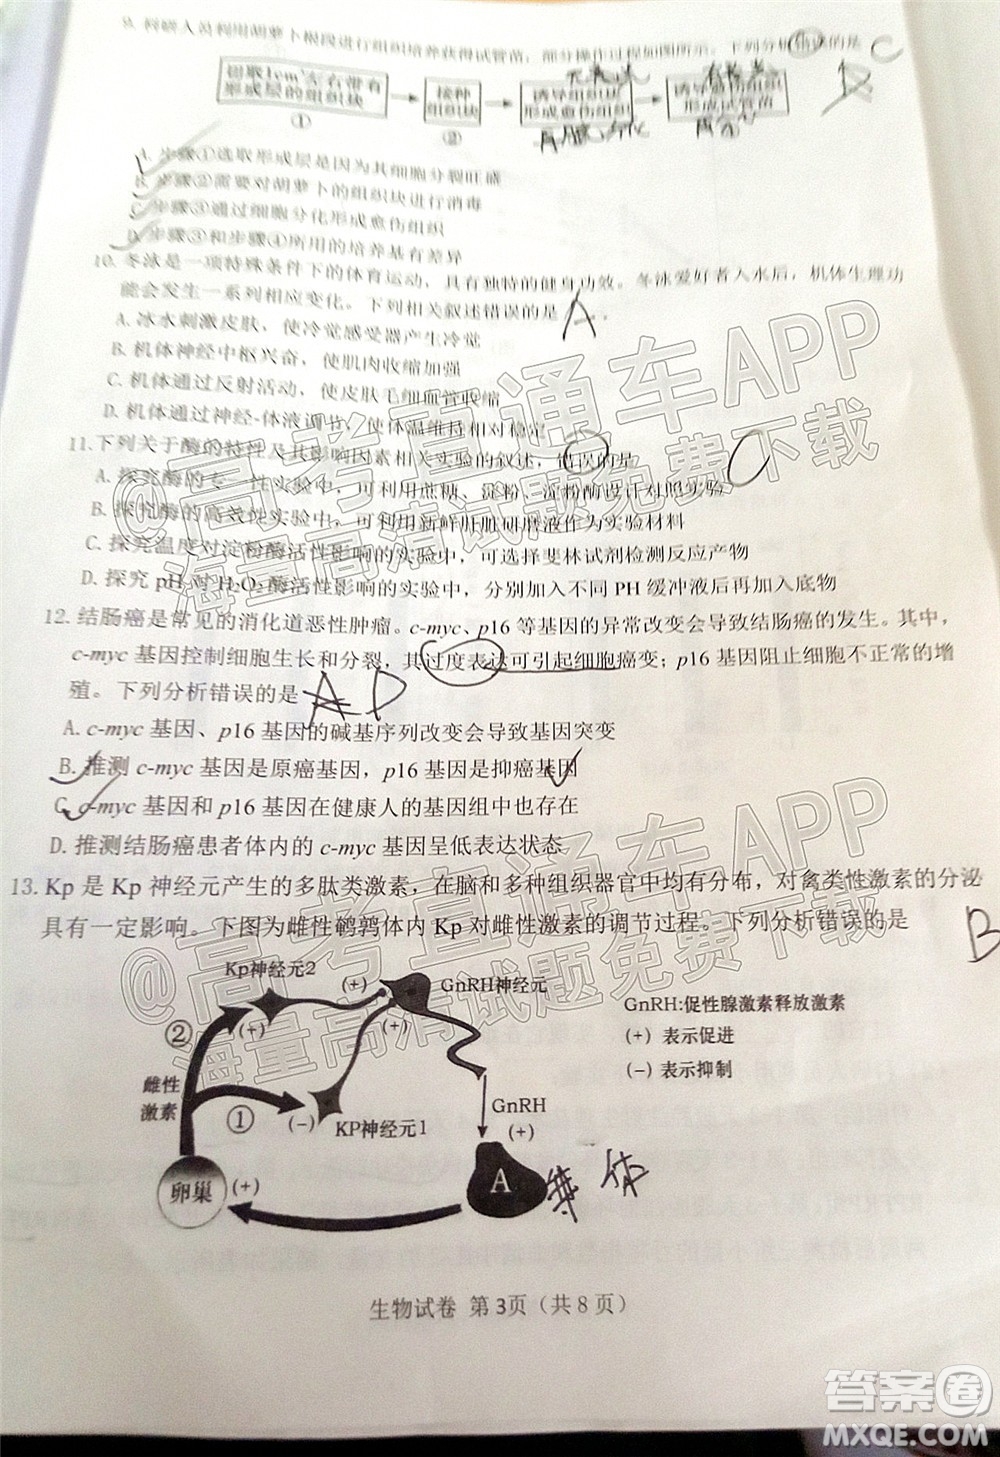 9. 科研人员利用胡萝卜根段进行组织培养获得试管苗，部分操作过程如图所示。下列分析错误的是 C
切取1cm³左右带有形成层的组织块 ①
接种组织块 ②
诱导组织块形成愈伤组织
诱导愈伤组织形成试管苗
A. 步骤①选取形成层是因为其细胞分裂旺盛
B. 步骤②需要对胡萝卜的组织块进行消毒
C. 步骤③通过细胞分化形成愈伤组织
D. 步骤③和步骤④所用的培养基有差异
10. 冬泳是一项特殊条件下的体育运动，具有独特的健身功效。冬泳爱好者入水后，机体生理功
能会发生一系列相应变化。下列相关叙述错误的是 A .
A. 冰水刺激皮肤，使冷觉感受器产生冷觉
B. 机体神经中枢兴奋，使肌肉收缩加强
C. 机体通过反射活动，使皮肤毛细血管收缩
D. 机体通过神经-体液调节，使体温维持相对稳定
11. 下列关于酶的特性及其影响因素相关实验的叙述，错误的是
A. 探究酶的专一性实验时，可利用蔗糖、淀粉、淀粉酶设计对照实验
B. 探究酶的高效性实验中，可利用新鲜肝脏研磨液作为实验材料
C. 探究温度对淀粉酶活性影响的实验中，可选择斐林试剂检测反应产物
D. 探究 pH 对 H₂O₂ 酶活性影响的实验中，分别加入不同 PH 缓冲液后再加入底物
12. 结肠癌是常见的消化道恶性肿瘤。c-myc、p16 等基因的异常改变会导致结肠癌的发生。其中，
c-myc 基因控制细胞生长和分裂，其过度表达可引起细胞癌变；p16 基因阻止细胞不正常的增
殖。下列分析错误的是 A D
A. c-myc 基因、p16 基因的碱基序列改变会导致基因突变
B. 推测 c-myc 基因是原癌基因，p16 基因是抑癌基因
C. c-myc 基因和 p16 基因在健康人的基因组中也存在
D. 推测结肠癌患者体内的 c-myc 基因呈低表达状态
13. Kp 是 Kp 神经元产生的多肽类激素，在脑和多种组织器官中均有分布，对禽类性激素的分泌
具有一定影响。下图为雌性鹌鹑体内 Kp 对雌性激素的调节过程。下列分析错误的是 B
Kp神经元2
(+)
GnRH神经元
(+)
(+)
②
雌性激素
①
(−)
KP神经元1
GnRH
(+)
A 垂体
卵巢
(+)
GnRH:促性腺激素释放激素
(+) 表示促进
(−) 表示抑制
生物试卷 第3页（共8页）
@高考直通车APP
海量高清试题免费下载
@高考直通车APP
海量高清试题免费下载
答案圈
MXQE.COM